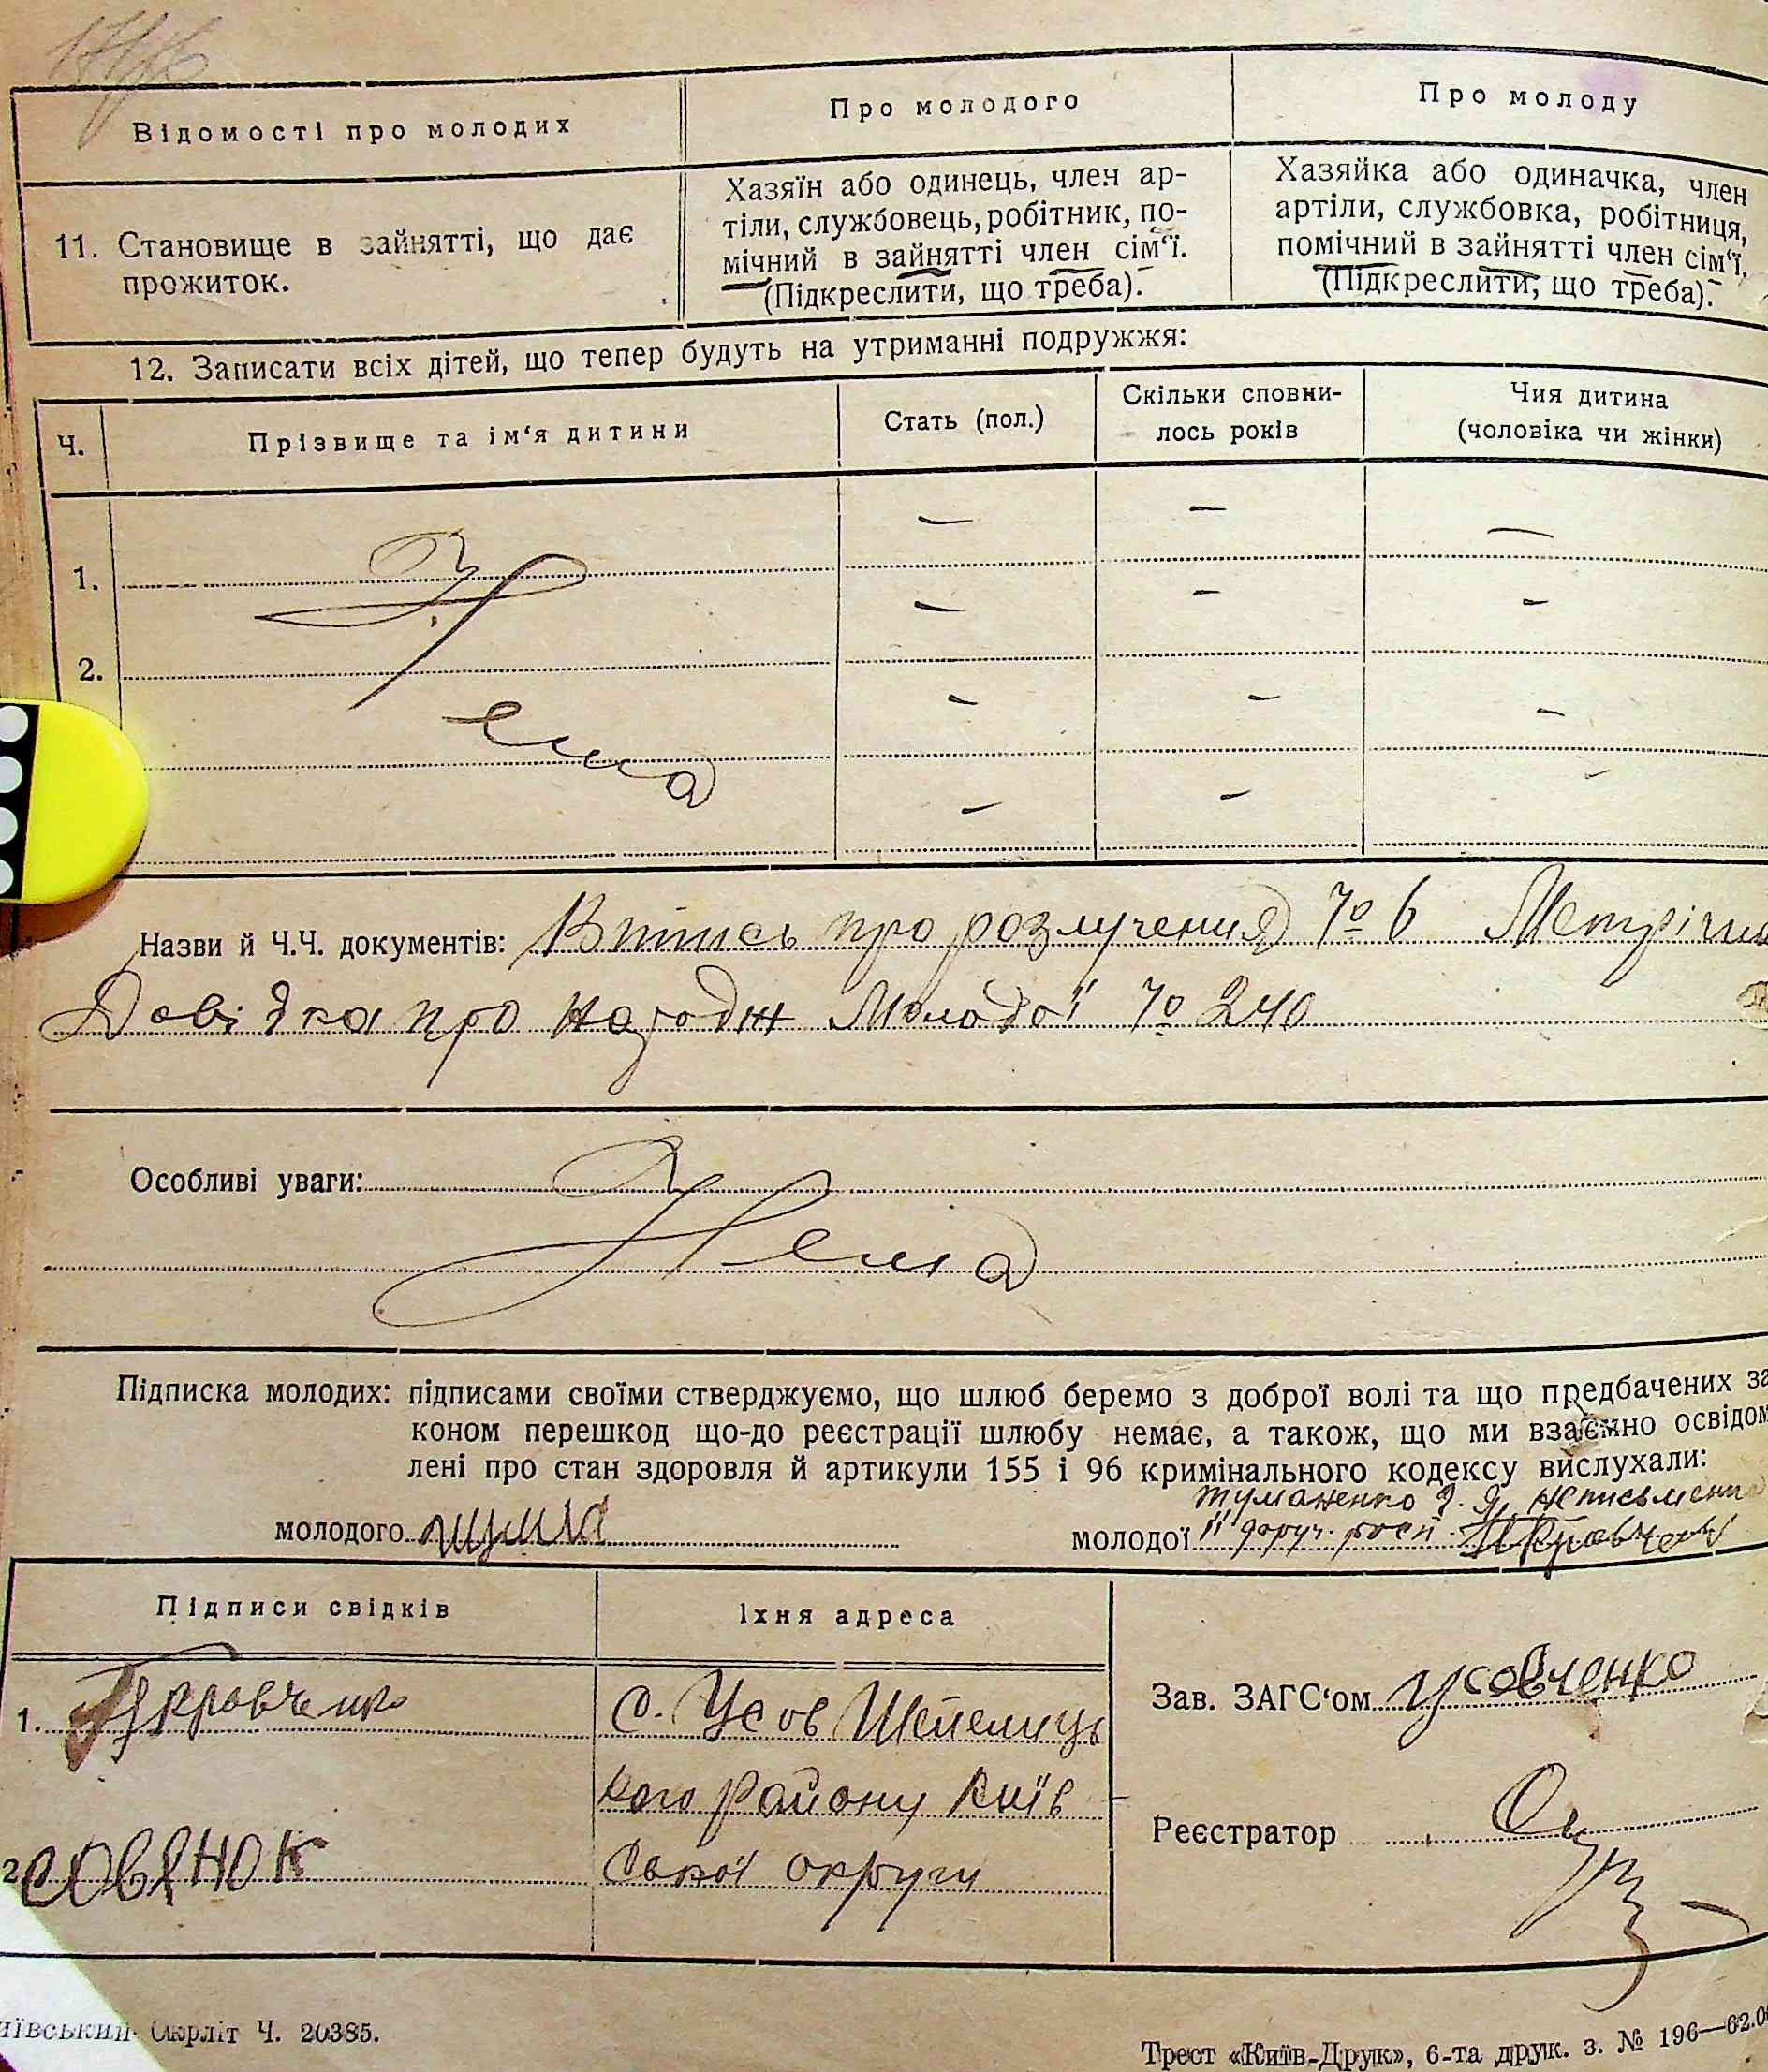 Відомості про молодих
Про молодого
Про молоду
11. Становище в зайнятті, що дає
прожиток.
Хазяїн або одинець, член ар-
тіли, службовець, робітник, по-
мічний в зайнятті член сім‘ї.
(Підкреслити, що треба).
Хазяйка або одиначка, член
артіли, службовка, робітниця,
помічний в зайнятті член сім‘ї.
(Підкреслити, що треба).
12. Записати всіх дітей, що тепер будуть на утриманні подружжя:
Ч.
Прізвище та ім‘я дитини
Стать (пол.)
Скільки сповни-
лось років
Чия дитина
(чоловіка чи жінки)
— — —
1.
— — —
2.
Нема
— — —
— —
Назви й Ч.Ч. документів: Витись про розлучения № 6 Метрічн
Довідка про народж Молодої № 240
Особливі уваги:
Нема
Підписка молодих: підписами своїми стверджуємо, що шлюб беремо з доброї волі та що предбачених за
коном перешкод що-до реєстрації шлюбу немає, а також, що ми взаємно освідом
лені про стан здоровля й артикули 155 і 96 кримінального кодексу вислухали:
Туманенко Я. неписьменна
молодого
молодої її доруч. росп. Кравченко
Підписи свідків
Їхня адреса
1. Кравченко
с. Усов Шепелиць
кого району Київ
ської округи
2. СОВЯНОК
Зав. ЗАГС‘ом Усовченко
Реєстратор
иївський Окрліт Ч. 20385.
Трест «Київ-Друк», 6-та друк. з. № 196—62.00